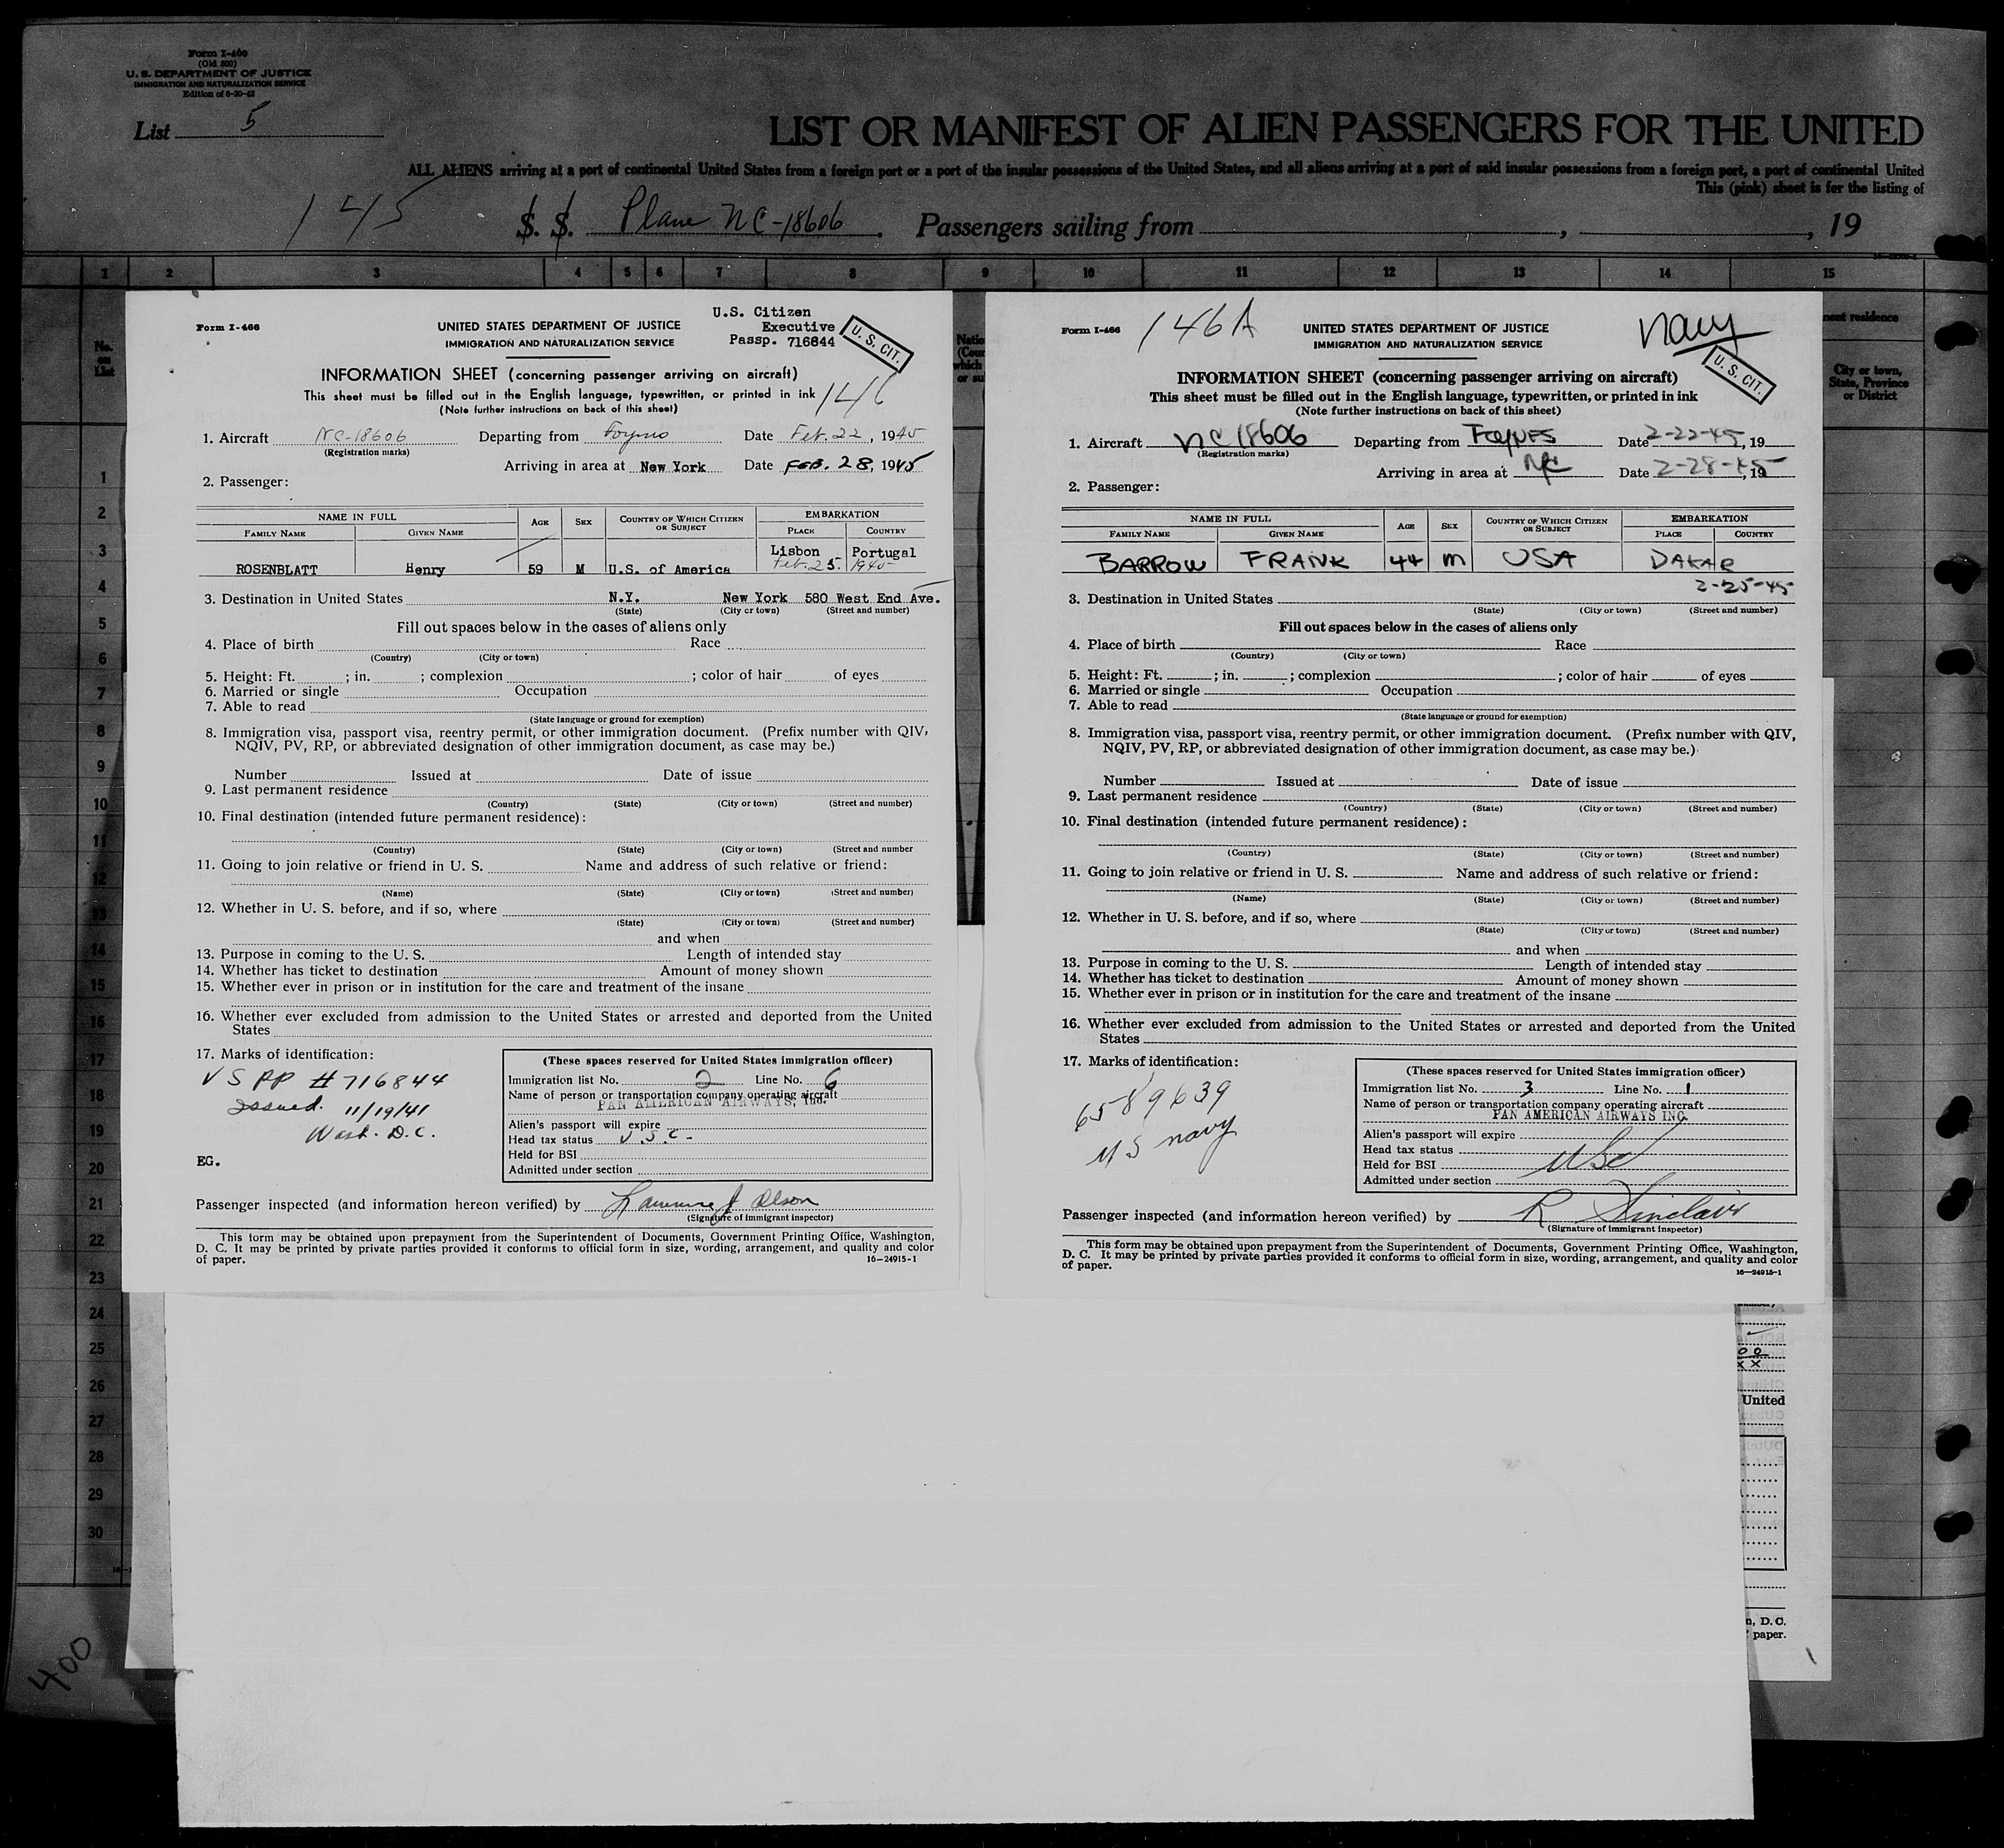 Form I-400
(Old 500)
U. S. DEPARTMENT OF JUSTICE
IMMIGRATION AND NATURALIZATION SERVICE
Edition of 6-20-42
List 5
LIST OR MANIFEST OF ALIEN PASSENGERS FOR THE UNITED
ALL ALIENS arriving at a port of continental United States from a foreign port or a port of the insular possessions of the United States, and all aliens arriving at a port of said insular possessions from a foreign port, a port of continental United
This (pink) sheet is for the listing of
145 S. S. Plane NC-18606 . Passengers sailing from , , 19
1 2 3 4 5 6 7 8 9 10 11 12 13 14 15
No.
on
List
nent residence
City or town,
State, Province
or District
1
2
3
4
5
6
7
8
9
10
11
12
13
14
15
16
17
18
19
20
21
22
23
24
25
26
27
28
29
30
400
Form I-466
UNITED STATES DEPARTMENT OF JUSTICE
IMMIGRATION AND NATURALIZATION SERVICE
U.S. Citizen
Executive
Passp. 716844
U. S. CIT.
INFORMATION SHEET (concerning passenger arriving on aircraft)
This sheet must be filled out in the English language, typewritten, or printed in ink
146
(Note further instructions on back of this sheet)
1. Aircraft NC-18606 Departing from Foynes Date Feb. 22, 1945
(Registration marks)
Arriving in area at New York Date FEB. 28, 1945
2. Passenger:
NAME IN FULL AGE SEX COUNTRY OF WHICH CITIZEN OR SUBJECT EMBARKATION
FAMILY NAME GIVEN NAME PLACE COUNTRY
Lisbon Portugal
Feb. 25. 1945
ROSENBLATT Henry 59 M U.S. of America
3. Destination in United States N.Y. New York 580 West End Ave.
(State) (City or town) (Street and number)
Fill out spaces below in the cases of aliens only
4. Place of birth Race
(Country) (City or town)
5. Height: Ft. ; in. ; complexion ; color of hair of eyes
6. Married or single Occupation
7. Able to read
(State language or ground for exemption)
8. Immigration visa, passport visa, reentry permit, or other immigration document. (Prefix number with QIV,
NQIV, PV, RP, or abbreviated designation of other immigration document, as case may be.)
Number Issued at Date of issue
9. Last permanent residence
(Country) (State) (City or town) (Street and number)
10. Final destination (intended future permanent residence):
(Country) (State) (City or town) (Street and number
11. Going to join relative or friend in U. S. Name and address of such relative or friend:
(Name) (State) (City or town) (Street and number)
12. Whether in U. S. before, and if so, where
(State) (City or town) (Street and number)
and when
13. Purpose in coming to the U. S. Length of intended stay
14. Whether has ticket to destination Amount of money shown
15. Whether ever in prison or in institution for the care and treatment of the insane
16. Whether ever excluded from admission to the United States or arrested and deported from the United
States
17. Marks of identification:
V S PP # 716844
Issued 11/19/41
Wash. D.C.
EG.
(These spaces reserved for United States immigration officer)
Immigration list No. 2 Line No. 6
Name of person or transportation company operating aircraft
PAN AMERICAN AIRWAYS, Inc.
Alien's passport will expire
Head tax status U.S.C.
Held for BSI
Admitted under section
Passenger inspected (and information hereon verified) by Lawrence J Olson
(Signature of immigrant inspector)
This form may be obtained upon prepayment from the Superintendent of Documents, Government Printing Office, Washington,
D. C. It may be printed by private parties provided it conforms to official form in size, wording, arrangement, and quality and color
of paper.
16-24915-1
Form I-466
146A
UNITED STATES DEPARTMENT OF JUSTICE
IMMIGRATION AND NATURALIZATION SERVICE
Navy
U. S. CIT.
INFORMATION SHEET (concerning passenger arriving on aircraft)
This sheet must be filled out in the English language, typewritten, or printed in ink
(Note further instructions on back of this sheet)
1. Aircraft NC 18606 Departing from FOYNES Date 2-22-45, 19
(Registration marks)
Arriving in area at NYC Date 2-28-45, 19
2. Passenger:
NAME IN FULL AGE SEX COUNTRY OF WHICH CITIZEN OR SUBJECT EMBARKATION
FAMILY NAME GIVEN NAME PLACE COUNTRY
BARROW FRANK 44 M USA DAKAR
2-25-45
3. Destination in United States
(State) (City or town) (Street and number)
Fill out spaces below in the cases of aliens only
4. Place of birth Race
(Country) (City or town)
5. Height: Ft. ; in. ; complexion ; color of hair of eyes
6. Married or single Occupation
7. Able to read
(State language or ground for exemption)
8. Immigration visa, passport visa, reentry permit, or other immigration document. (Prefix number with QIV,
NQIV, PV, RP, or abbreviated designation of other immigration document, as case may be.)
Number Issued at Date of issue
9. Last permanent residence
(Country) (State) (City or town) (Street and number)
10. Final destination (intended future permanent residence):
(Country) (State) (City or town) (Street and number)
11. Going to join relative or friend in U. S. Name and address of such relative or friend:
(Name) (State) (City or town) (Street and number)
12. Whether in U. S. before, and if so, where
(State) (City or town) (Street and number)
and when
13. Purpose in coming to the U. S. Length of intended stay
14. Whether has ticket to destination Amount of money shown
15. Whether ever in prison or in institution for the care and treatment of the insane
16. Whether ever excluded from admission to the United States or arrested and deported from the United
States
17. Marks of identification:
6589639
U S Navy
(These spaces reserved for United States immigration officer)
Immigration list No. 3 Line No. 1
Name of person or transportation company operating aircraft
PAN AMERICAN AIRWAYS INC.
Alien's passport will expire
Head tax status
Held for BSI USC
Admitted under section
Passenger inspected (and information hereon verified) by R Sinclair
(Signature of immigrant inspector)
This form may be obtained upon prepayment from the Superintendent of Documents, Government Printing Office, Washington,
D. C. It may be printed by private parties provided it conforms to official form in size, wording, arrangement, and quality and color
of paper.
16-24915-1
United
n, D. C.
paper.